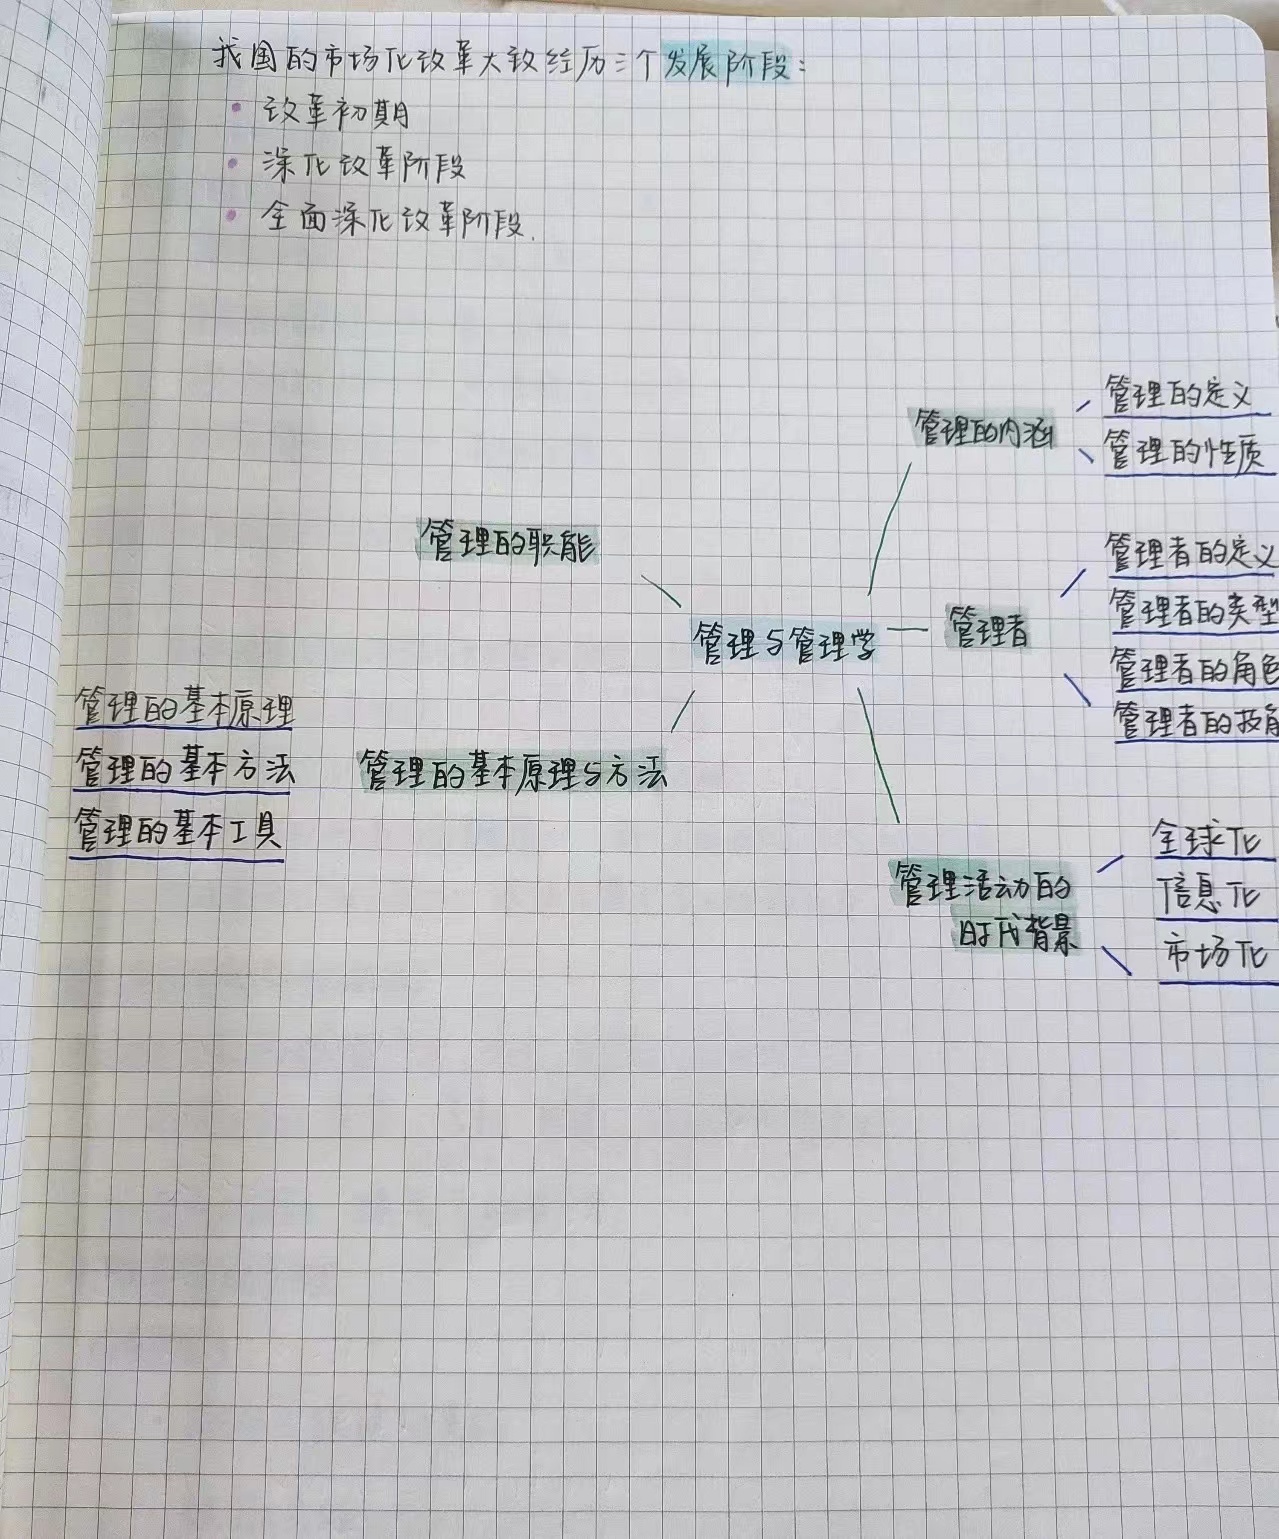 我国的市场化改革大致经历三个发展阶段：
改革初期
深化改革阶段
全面深化改革阶段.
管理的定义
管理的内涵
管理的性质
管理的职能
管理者的定义
管理者的类型
管理与管理学
管理者
管理者的角色
管理者的技
管理的基本原理
管理的基本方法
管理的基本工具
管理的基本原理与方法
管理活动的
时代背景
全球化
信息化
市场化